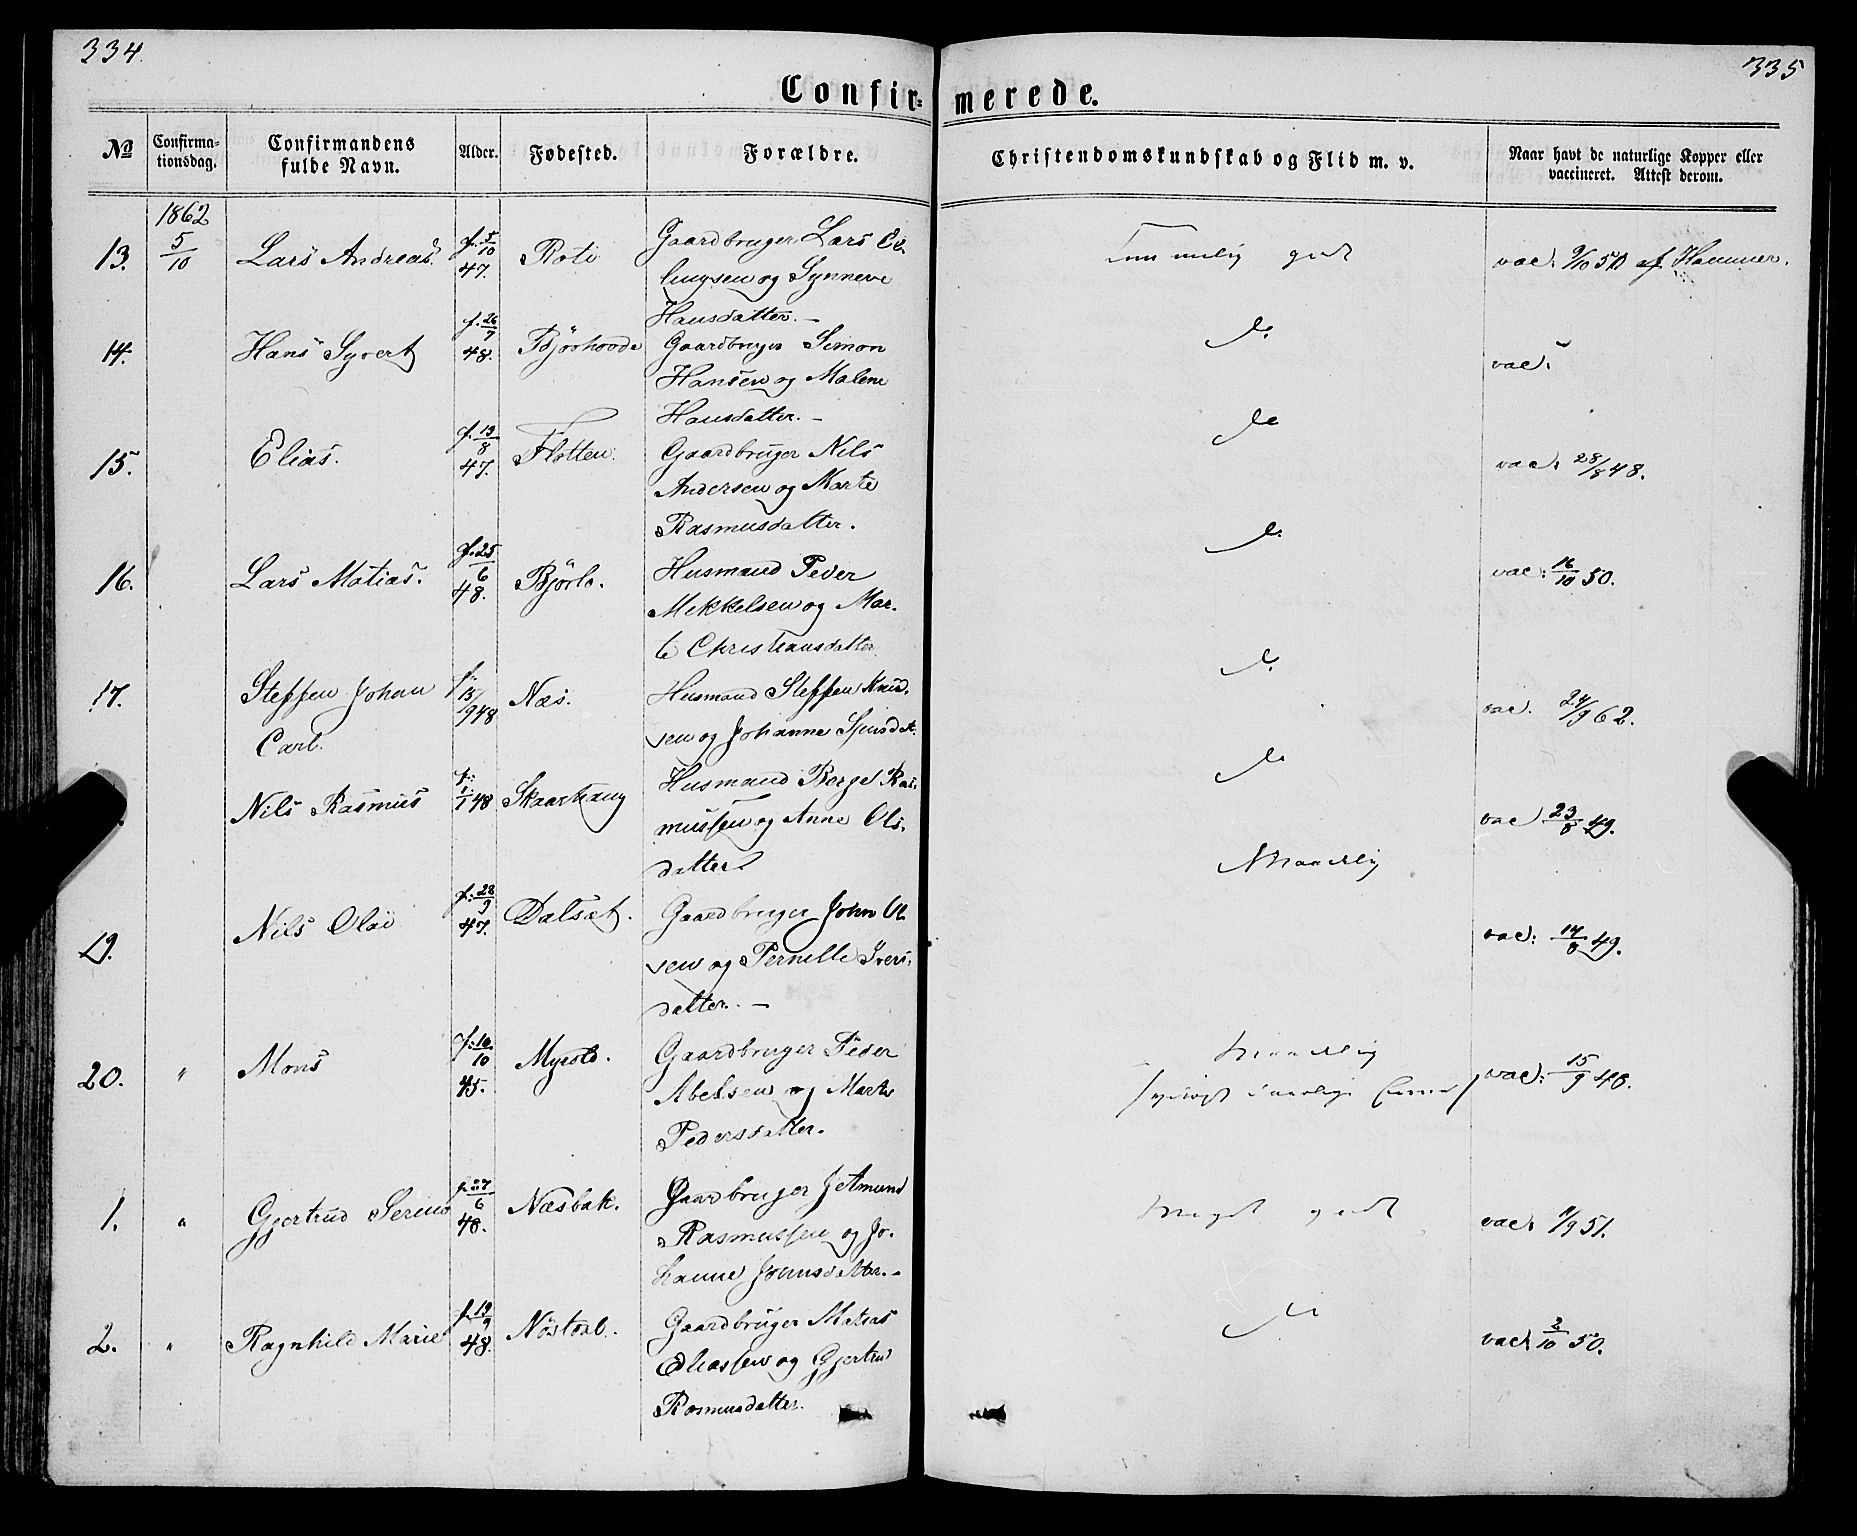 334.
335
Confir= merede.
No
Confirma-
tionsdag.
Confirmandens
fulde Navn.
Alder.
Fødested.
Forældre.
Christendomskundskab og Flid m. v.
Naar havt de naturlige Kopper eller
vaccineret. Attest derom.
1862
13. 5/10 Lars Andreas. f. 5/10 47. Roti Gaardbruger Lars El-
lingsen og Synneve
Hansdatter. –
Temmelig godt vac. 9/10 50 af Hammer.
14. Hans Syvert f. 26/7 48. Bjørhovde Gaardbruger Simon
Hansen og Malene
Hansdatter. –
do vac:
15. Elias. f. 19/8 47. Flotten. Gaardbruger Nils
Andersen og Marte
Rasmusdatter.
do vac. 28/8 48.
16. Lars Matias. f. 25/6 48. Bjørlo. Husmand Peder
Mekkelsen og Mar-
te Christiansdatter
do vac: 16/10 50.
17. Steffen Johan f. 15/9 48 Næs. Husmand Steffen Knud-
Carl. sen og Johanne
do vac. 24/9 62.
Nils Rasmus f. 1/1 48 Skaarhaug Husmand Børge Ras-
mussen og Anne Ols-
datter.
do vac 23/8 49.
19. Nils Olai f. 28/9 47. Dalsæt. Gaardbruger John Ol-
sen og Pernille Ivers-
datter. –
Maadelig vac: 17/8 49.
20. " Mons f. 16/10 45. Myrold. Gaardbruger Peder
Abelsen og Marte
Pedersdatter.
Maadelig
vac: 15/9 48.
1. " Gjertrud Serine f. 27/6 48. Næsbak. Gaardbruger Jetmund
Rasmussen og Jo-
hanne Johnsdatter. –
Meget godt vac. 9/9 51.
2. " Ragnhild Marie f. 19/9 48. Nøstdal. Gaardbruger Matias
Eliassen og Gjertru
Rasmusdatter.
do vac. 2/10 50.